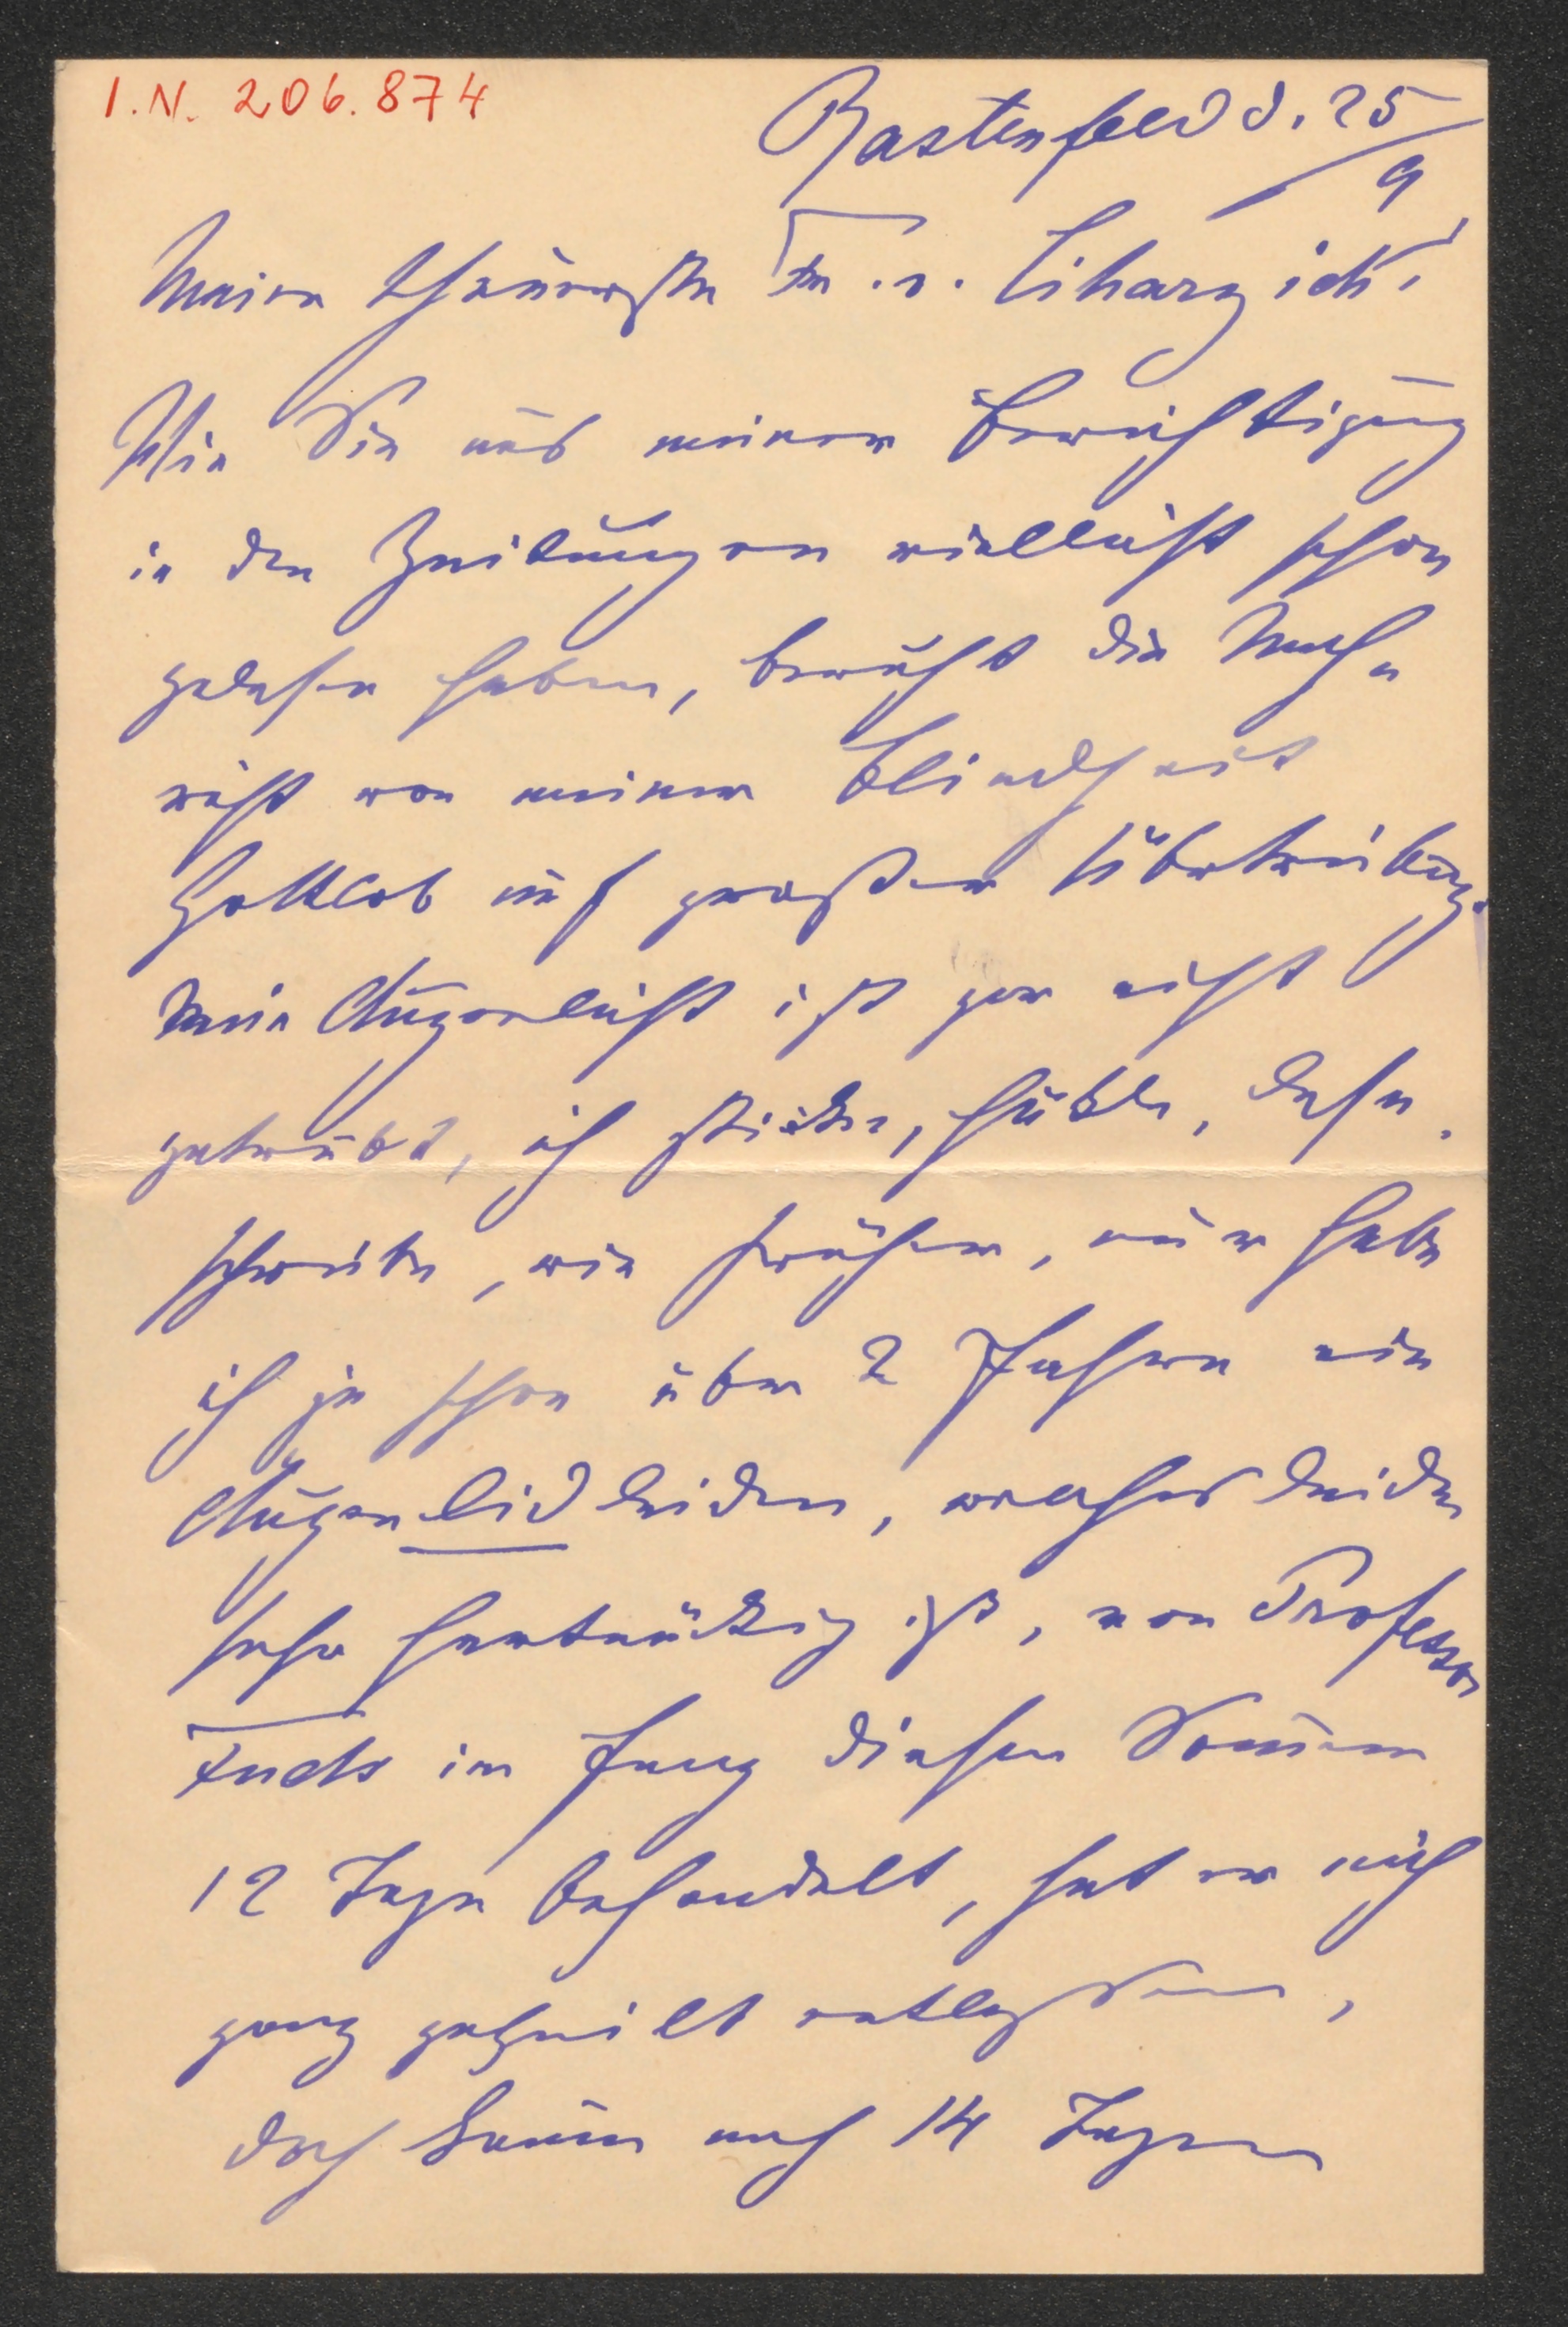 I.N. 206.874
Rastenfeld d. 25/9
Meine theuerste Fr. v. Liharzick!
Wie Sie aus meiner Berichtigung
in den Zeitungen vielleicht schon
gelesen haben, beruht die Nach-
richt von meiner Blindheit
Gottlob auf großer Übertreibung.
Mein Augenlicht ist gar nicht
getrübt, ich sticke, häkle, lese,
schreibe, wie früher, nur habe
ich ja schon über 2 Jahren ein
Augenlidleiden, welches leider
sehr hartnäckig ist, von Professor
Fuchs im diesen Sommer
12 Tage behandelt, hat er mich
ganz geheilt entlassen,
doch kaum nach 14 Tagen